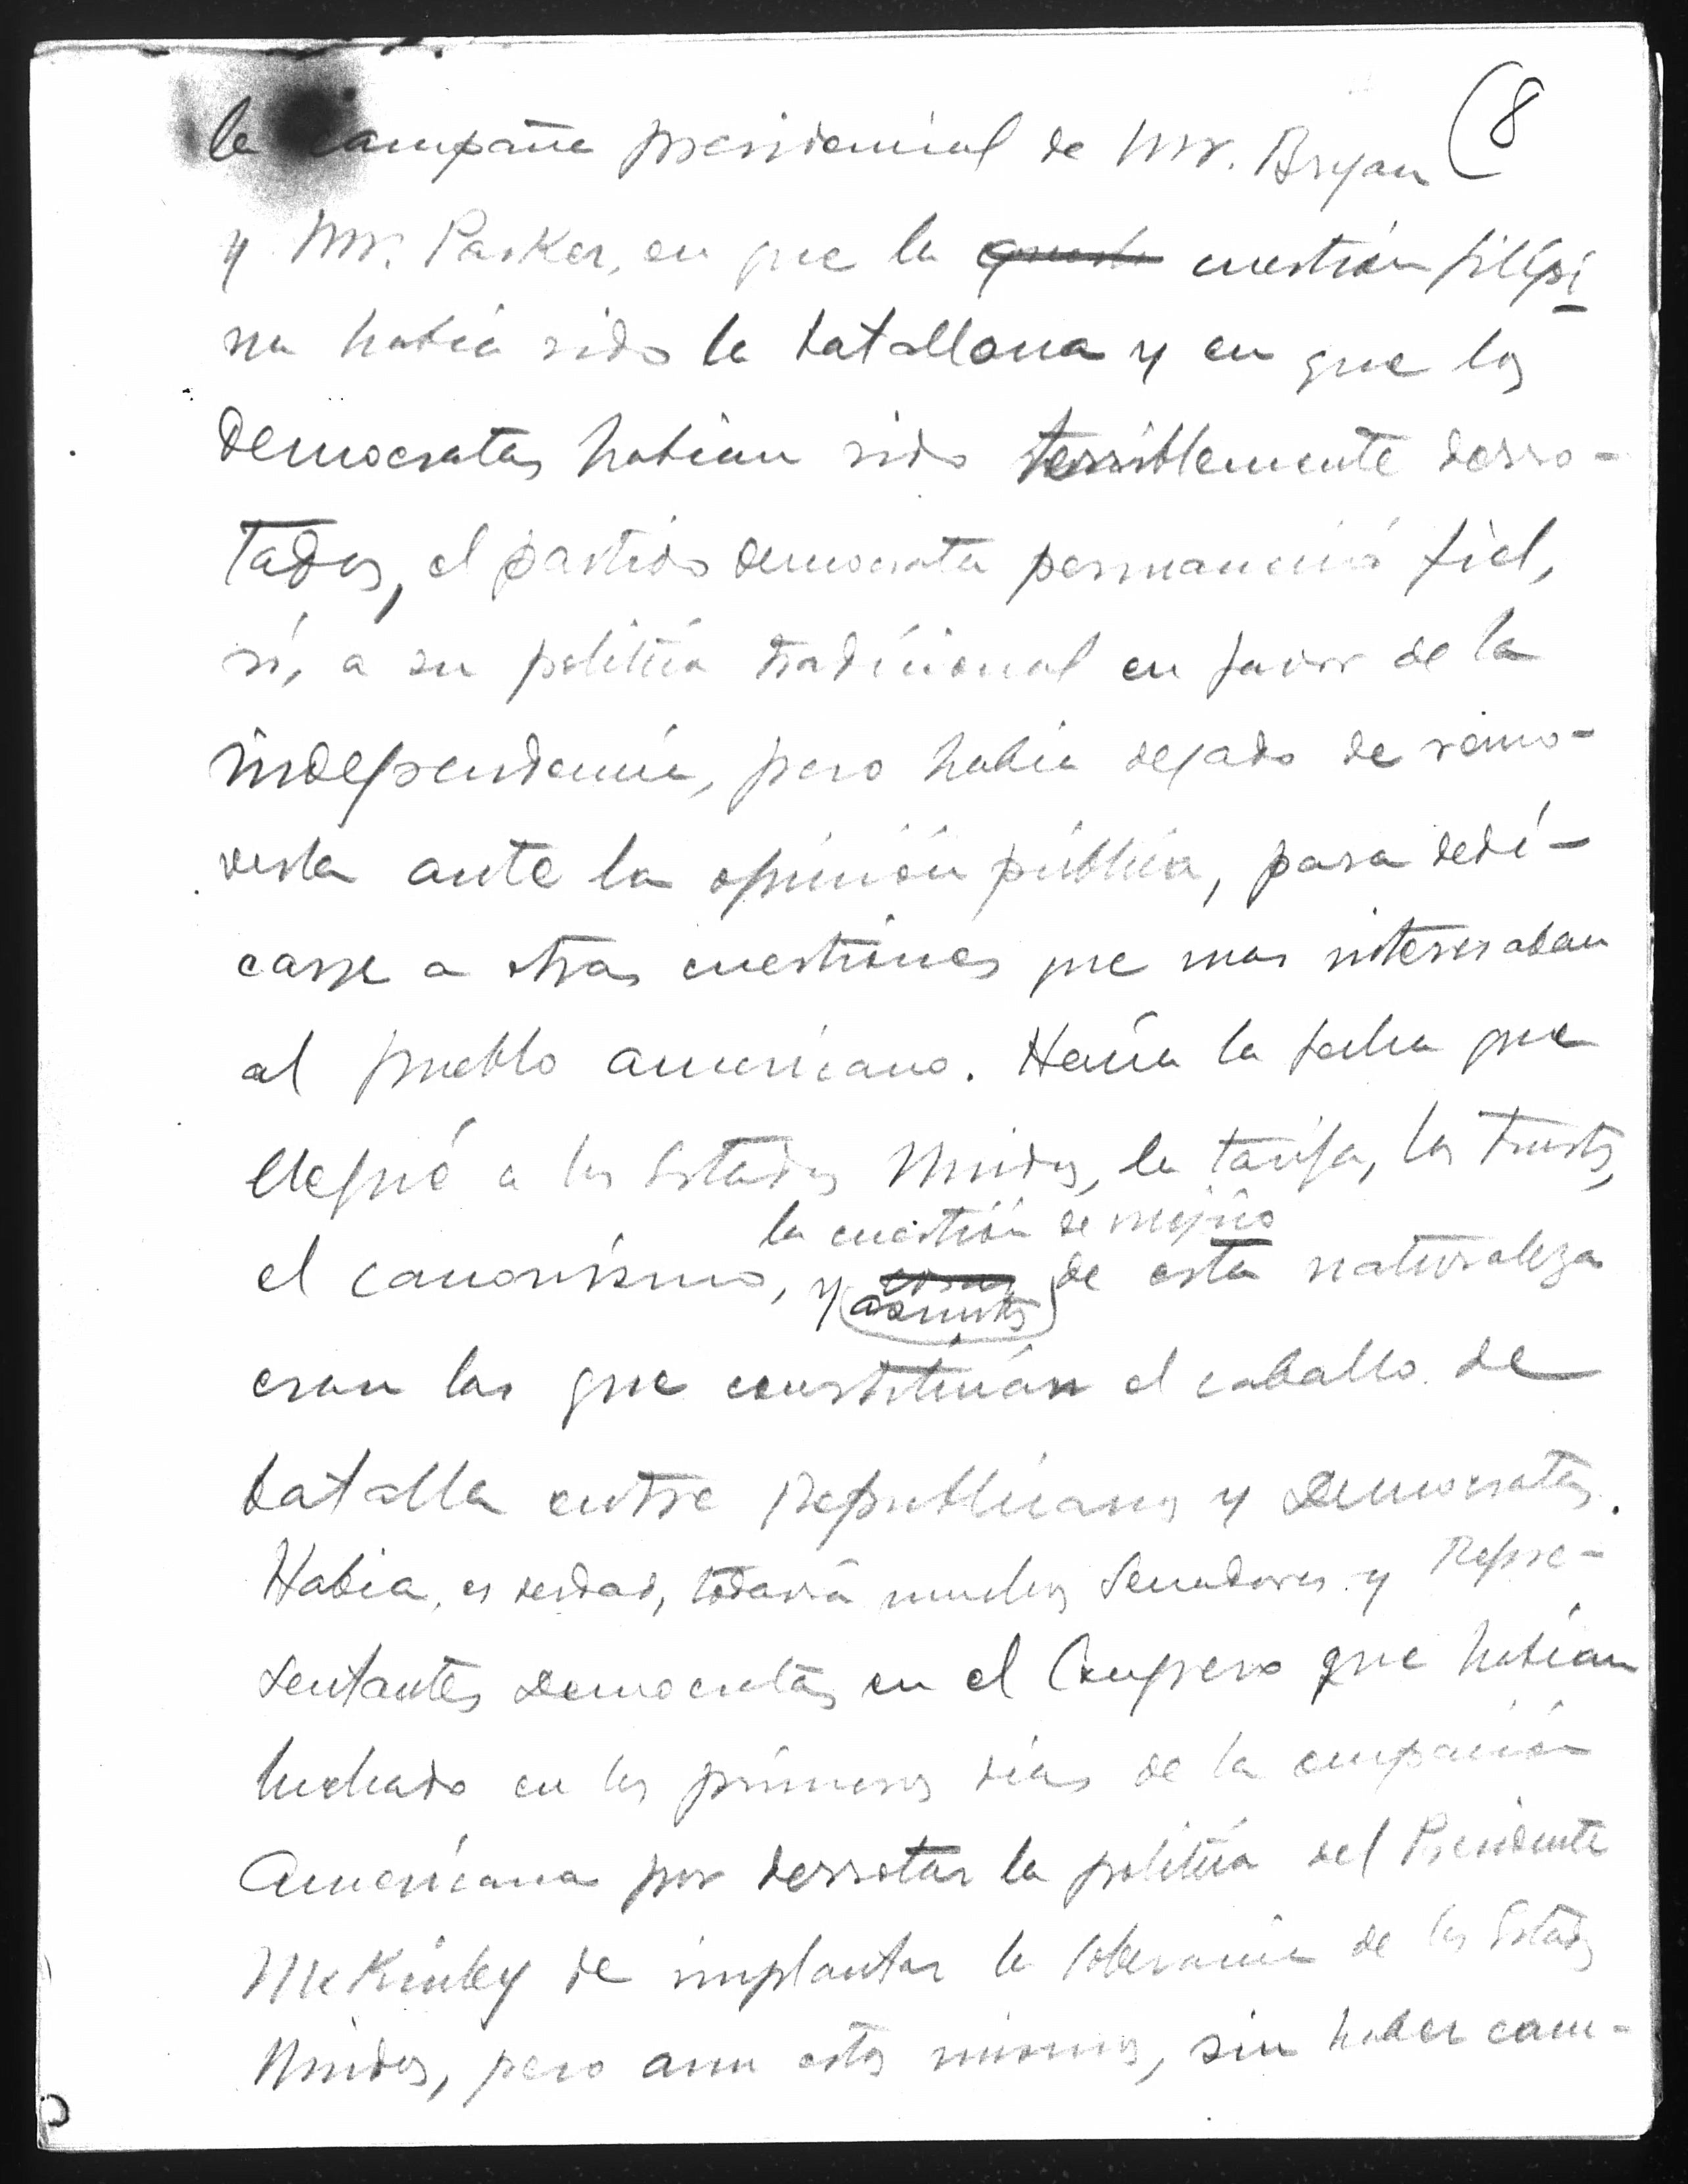 (8
la campaña presidencial de Mr. Bryan
y Mr. Parker, en que la cuestión filipi-
na había sido la batallona y en que los
Democratas habian sido terriblemente derro-
tados, el partido democrata permaneció fiel,
sí, a su política tradicional en favor de la
independencia, pero había dejado de remo-
verla ante la opinión pública, para dedi-
carse a otras cuestiones que mas interesaban
al pueblo americano. Hacia la fecha que
llegué a los Estados Unidos, la tarifa, los trusts,
la cuestión de mejico
el canonismo, y asuntos de esta naturaleza
eran los que constituían el caballo de
batalla entre Republicanos y Democratas.
Habia, es verdad, todavía muchos Senadores y Repre-
sentantes Democratas en el Congreso que habían
luchado en los primeros días de la ocupación
Americana por derrotar la política del Presidente
McKinley de implantar la soberania de los Estados
Unidos, pero aun estos mismos, sin haber cam-